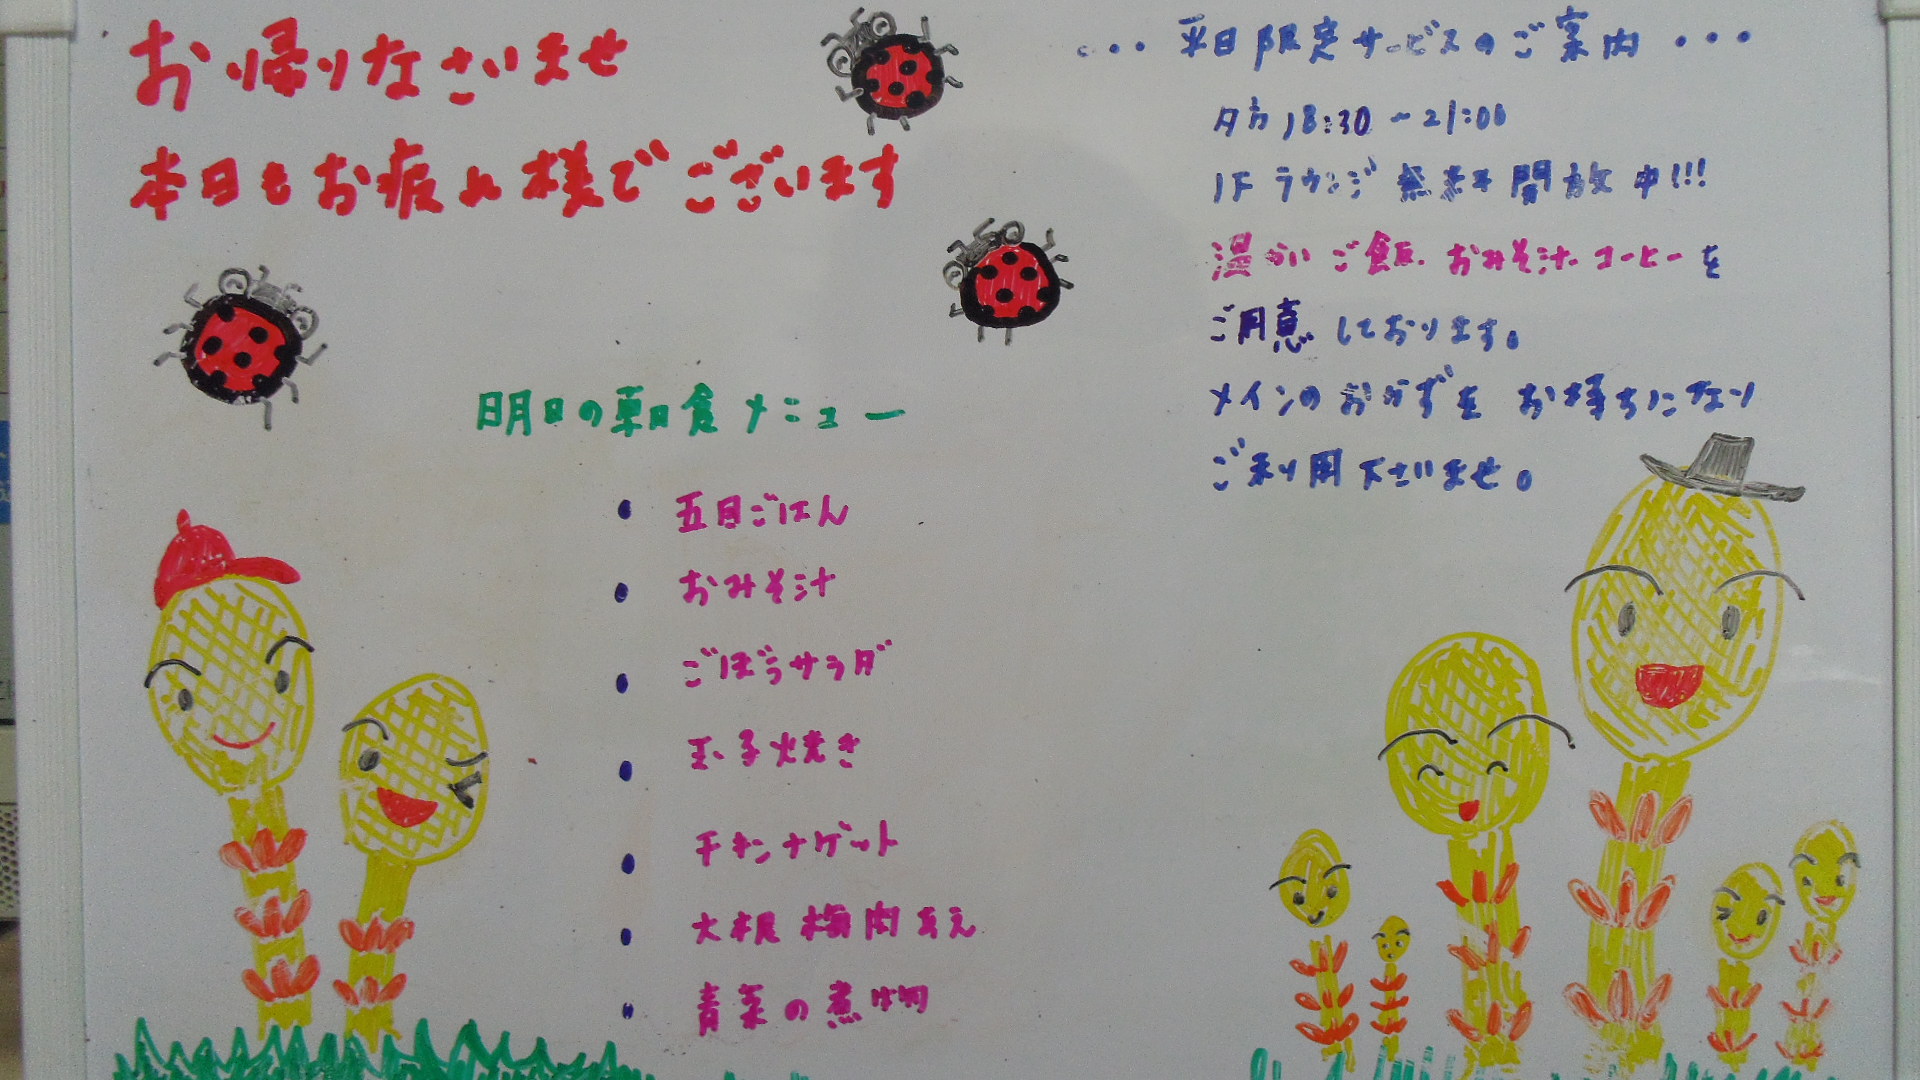 お帰りなさいませ
本日もお疲れ様でございます
・・・平日限定サービスのご案内・・・
夕方18:30~21:00
1Fラウンジ無料開放中!!!
温かいご飯、おみそ汁、コーヒーを
ご用意しております。
メインのおかずをお持ちになり
ご利用下さいませ。
明日の朝食メニュー
・五目ごはん
・おみそ汁
・ごぼうサラダ
・玉子焼き
・チキンナゲット
・大根梅肉あえ
・青菜の煮物